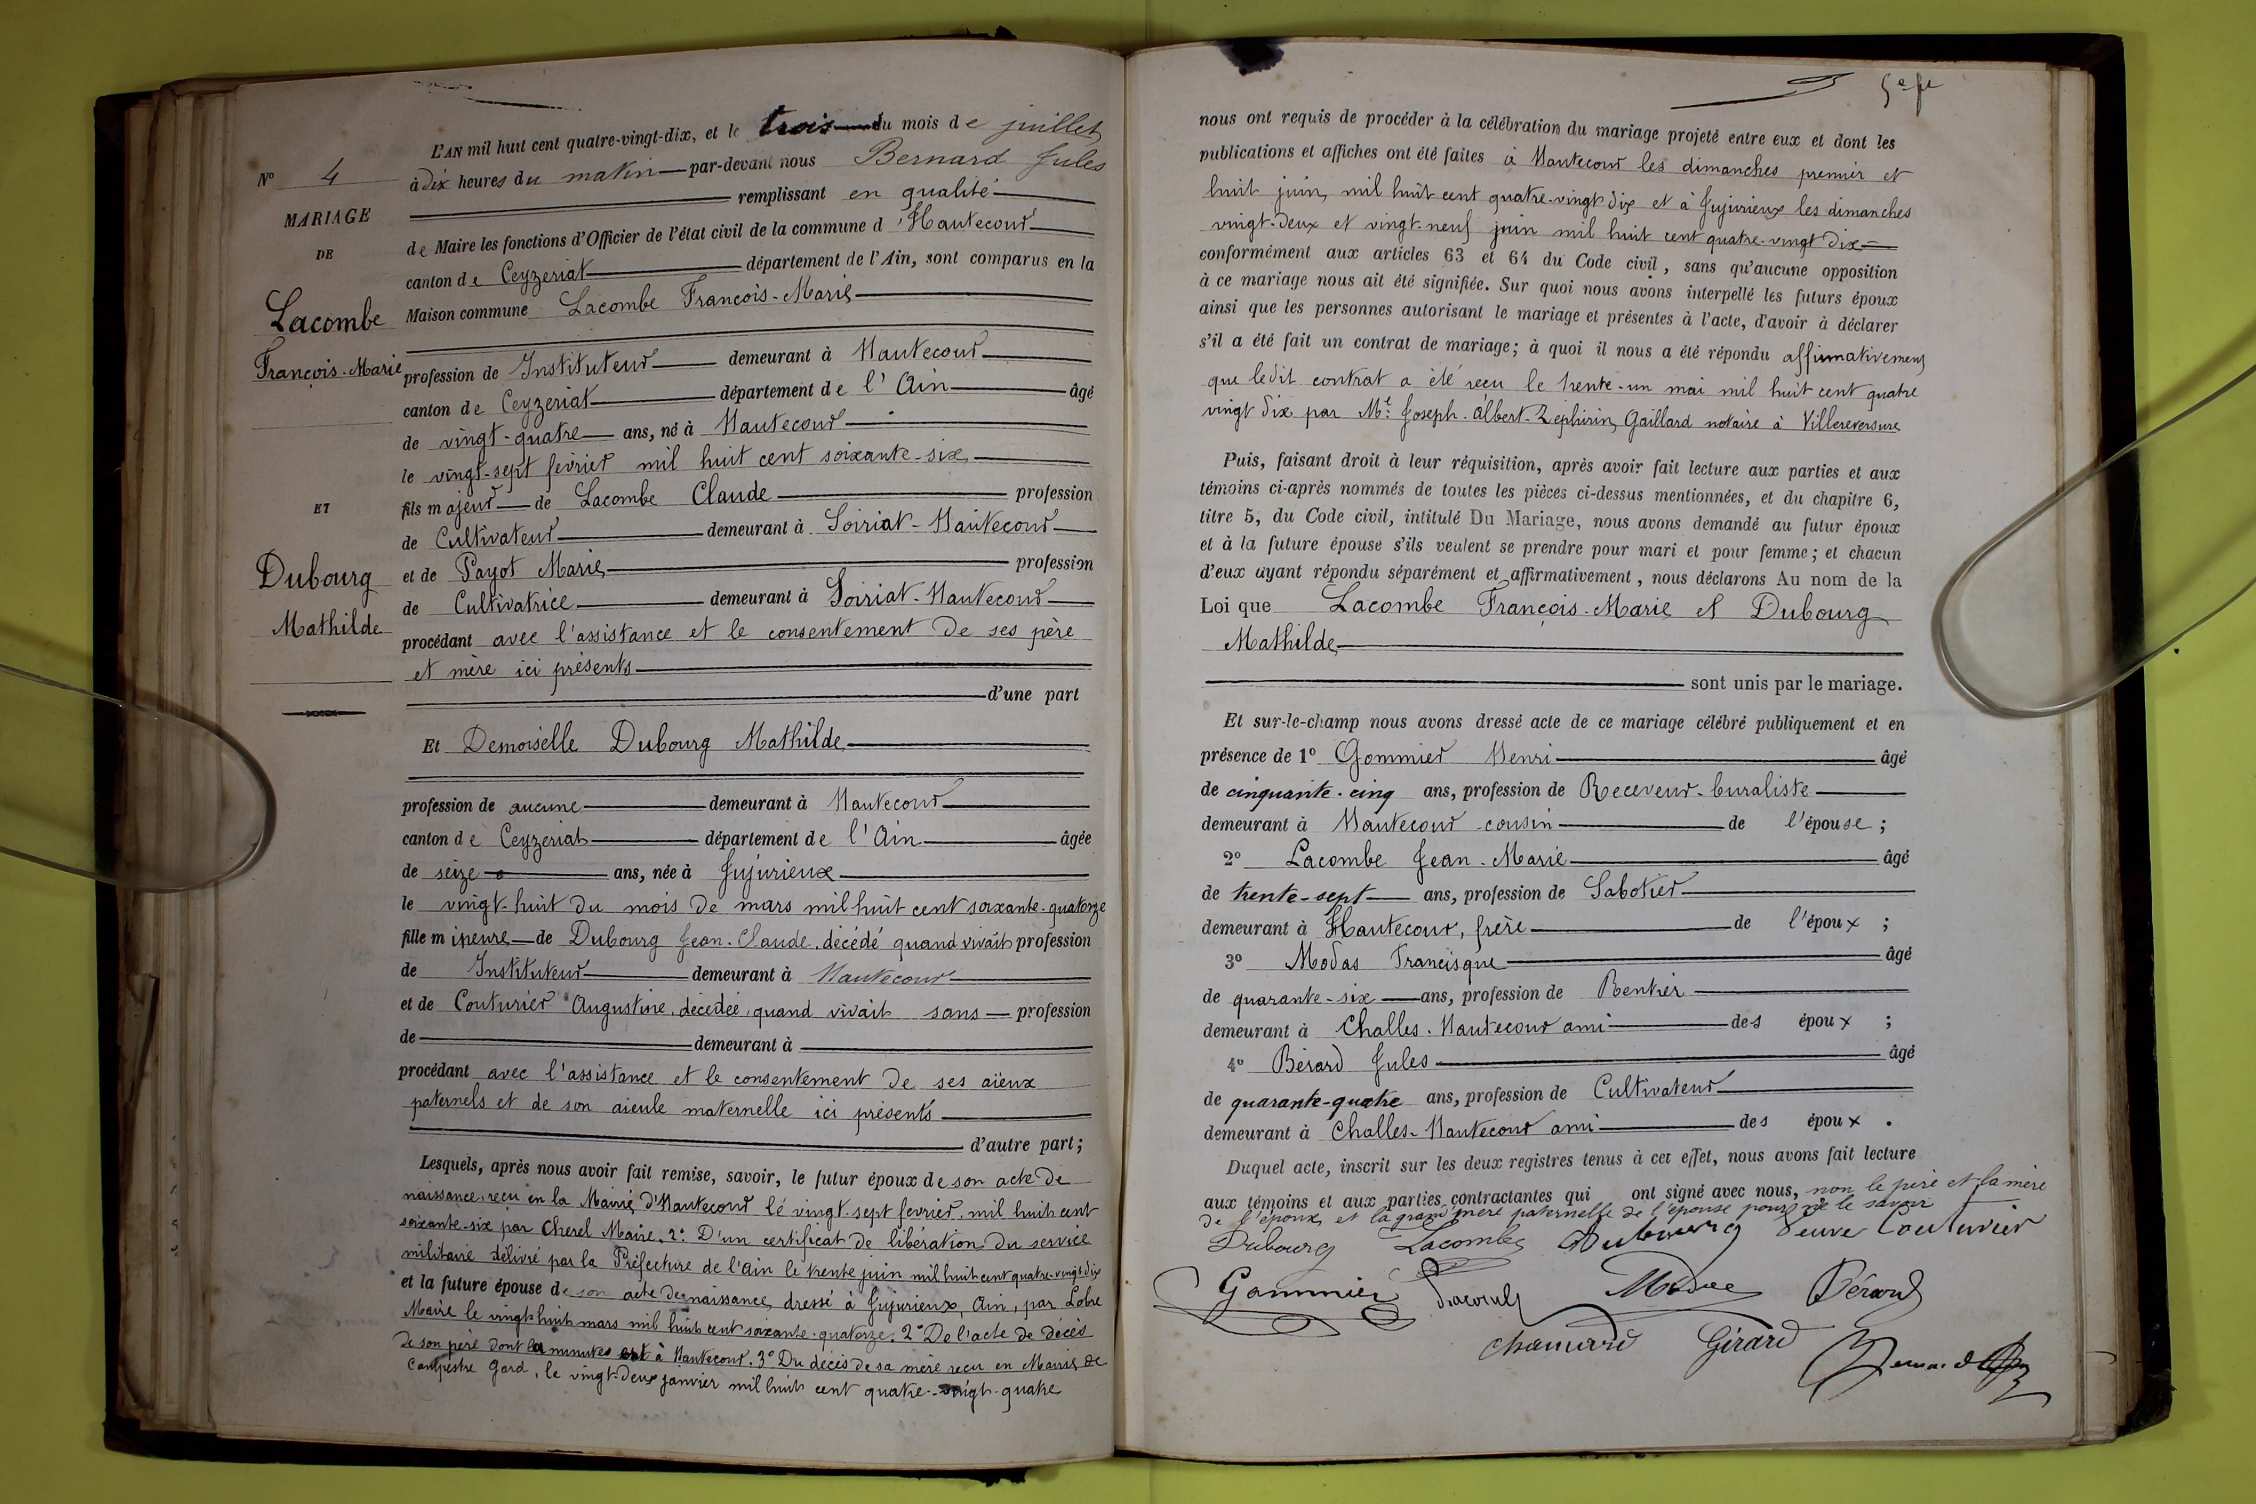 N° 4
MARIAGE
DE
Lacombe
François-Marie
ET
Dubourg
Mathilde
L'AN mil huit cent quatre-vingt-dix, et le trois du mois de juillet
à dix heures du matin par-devant nous Bernard Jules
remplissant en qualité
de Maire les fonctions d'Officier de l'état civil de la commune d'Hautecour
canton de Ceyzeriat département de l'Ain, sont comparus en la
Maison commune Lacombe François-Marie
profession de Instituteur demeurant à Hautecour
canton de Ceyzeriat département de l'Ain âgé
de vingt-quatre ans, né à Hautecour
le vingt-sept février mil huit cent soixante-six
fils majeur de Lacombe Claude profession
de Cultivateur demeurant à Soiriat-Hautecour
et de Payot Marie profession
de Cultivatrice demeurant à Soiriat-Hautecour
procédant avec l'assistance et le consentement de ses père
et mère ici présents
d'une part
Et Demoiselle Dubourg Mathilde
profession de aucune demeurant à Hautecour
canton de Ceyzeriat département de l'Ain âgée
de seize ans, née à Jujurieux
le vingt-huit du mois de mars mil huit cent soixante-quatorze
fille mineure de Dubourg Jean-Claude, décédé quand vivait profession
de Instituteur demeurant à Hautecour
et de Couturier Augustine, décédée, quand vivait sans profession
de demeurant à
procédant avec l'assistance et le consentement de ses aïeux
paternels et de son aieule maternelle ici présents
d'autre part;
Lesquels, après nous avoir fait remise, savoir, le futur époux de son acte de
naissance, reçu en la Mairie d'Hautecour le vingt-sept février mil huit cent
soixante-six par Cherel Maire. 2° D'un certificat de libération du service
militaire délivré par la Préfecture de l'Ain le trente juin mil huit cent quatre-vingt-dix
et la future épouse de son acte de naissance dressé à Jujurieux, Ain, par Lobre
Maire le vingt-huit mars mil huit cent soixante-quatorze. 2° De l'acte de décès
de son père dont la minute est à Hautecour. 3° Du décès de sa mère reçu en Mairie de
Campestre Gard, le vingt-deux janvier mil huit cent quatre-vingt-quatre
5e
nous ont requis de procéder à la célébration du mariage projeté entre eux et dont les
publications et affiches ont été faites à Hautecour les dimanches premier et
huit juin mil huit cent quatre-vingt dix et à Jujurieux les dimanches
vingt-deux et vingt-neuf juin mil huit cent quatre-vingt dix
conformément aux articles 63 et 64 du Code civil, sans qu'aucune opposition
à ce mariage nous ait été signifiée. Sur quoi nous avons interpellé les futurs époux
ainsi que les personnes autorisant le mariage et présentes à l'acte, d'avoir à déclarer
s'il a été fait un contrat de mariage; à quoi il nous a été répondu affirmativement
que ledit contrat a été reçu le trente-un mai mil huit cent quatre
vingt dix par Me Joseph-Albert-Zéphirin Gaillard notaire à Villereversure
Puis, faisant droit à leur réquisition, après avoir fait lecture aux parties et aux
témoins ci-après nommés de toutes les pièces ci-dessus mentionnées, et du chapitre 6,
titre 5, du Code civil, intitulé Du Mariage, nous avons demandé au futur époux
et à la future épouse s'ils veulent se prendre pour mari et pour femme; et chacun
d'eux ayant répondu séparément et affirmativement, nous déclarons Au nom de la
Loi que Lacombe François-Marie et Dubourg
Mathilde
sont unis par le mariage.
Et sur-le-champ nous avons dressé acte de ce mariage célébré publiquement et en
présence de 1° Gommier Henri âgé
de cinquante-cinq ans, profession de Receveur-buraliste
demeurant à Hautecour cousin de l'épouse;
2° Lacombe Jean-Marie âgé
de trente-sept ans, profession de Sabotier
demeurant à Hautecour, frère de l'époux;
3° Modas Francisque âgé
de quarante-six ans, profession de Rentier
demeurant à Challes-Hautecour ami des époux;
4° Bérard Jules âgé
de quarante-quatre ans, profession de Cultivateur
demeurant à Challes-Hautecour ami des époux.
Duquel acte, inscrit sur les deux registres tenus à cet effet, nous avons fait lecture
aux témoins et aux parties contractantes qui ont signé avec nous, non le père et la mère
de l'époux et la grand'mère paternelle de l'épouse pour ne le savoir
Dubourg Lacombe Dubourg Veuve Couturier
Gommier Lacombe Modas Bérard
Girard